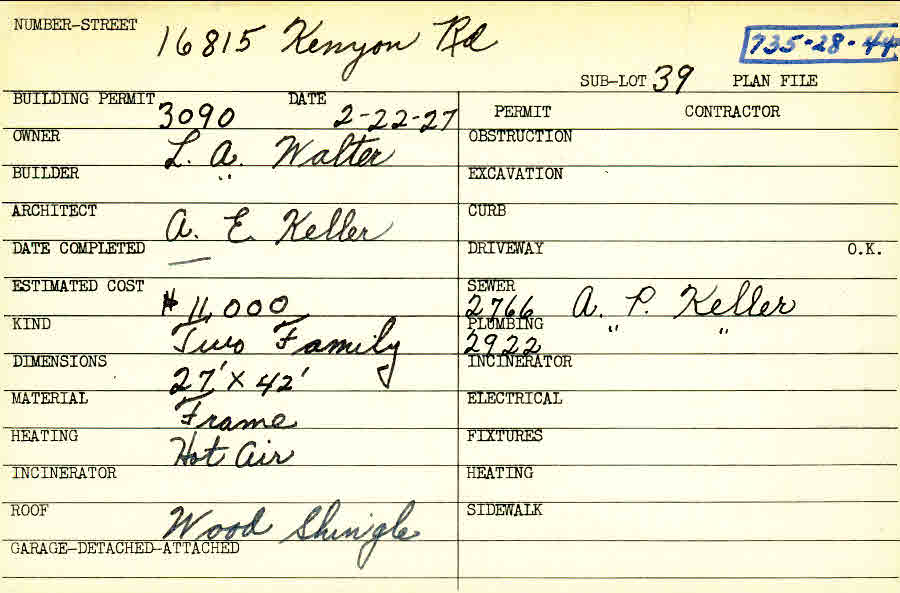 NUMBER-STREET 16815 Kenyon Rd
735-28-44
SUB-LOT 39 PLAN FILE
BUILDING PERMIT 3090 DATE 2-22-27
PERMIT CONTRACTOR
OWNER L. A. Walter
OBSTRUCTION
BUILDER "
EXCAVATION
ARCHITECT A. E. Keller
CURB
DATE COMPLETED —
DRIVEWAY O.K.
ESTIMATED COST $11,000
SEWER 2766 A. P. Keller
KIND Two Family
PLUMBING 2922 " "
DIMENSIONS 27' X 42'
INCINERATOR
MATERIAL Frame
ELECTRICAL
HEATING Hot Air
FIXTURES
INCINERATOR
HEATING
ROOF Wood Shingle
SIDEWALK
GARAGE-DETACHED-ATTACHED